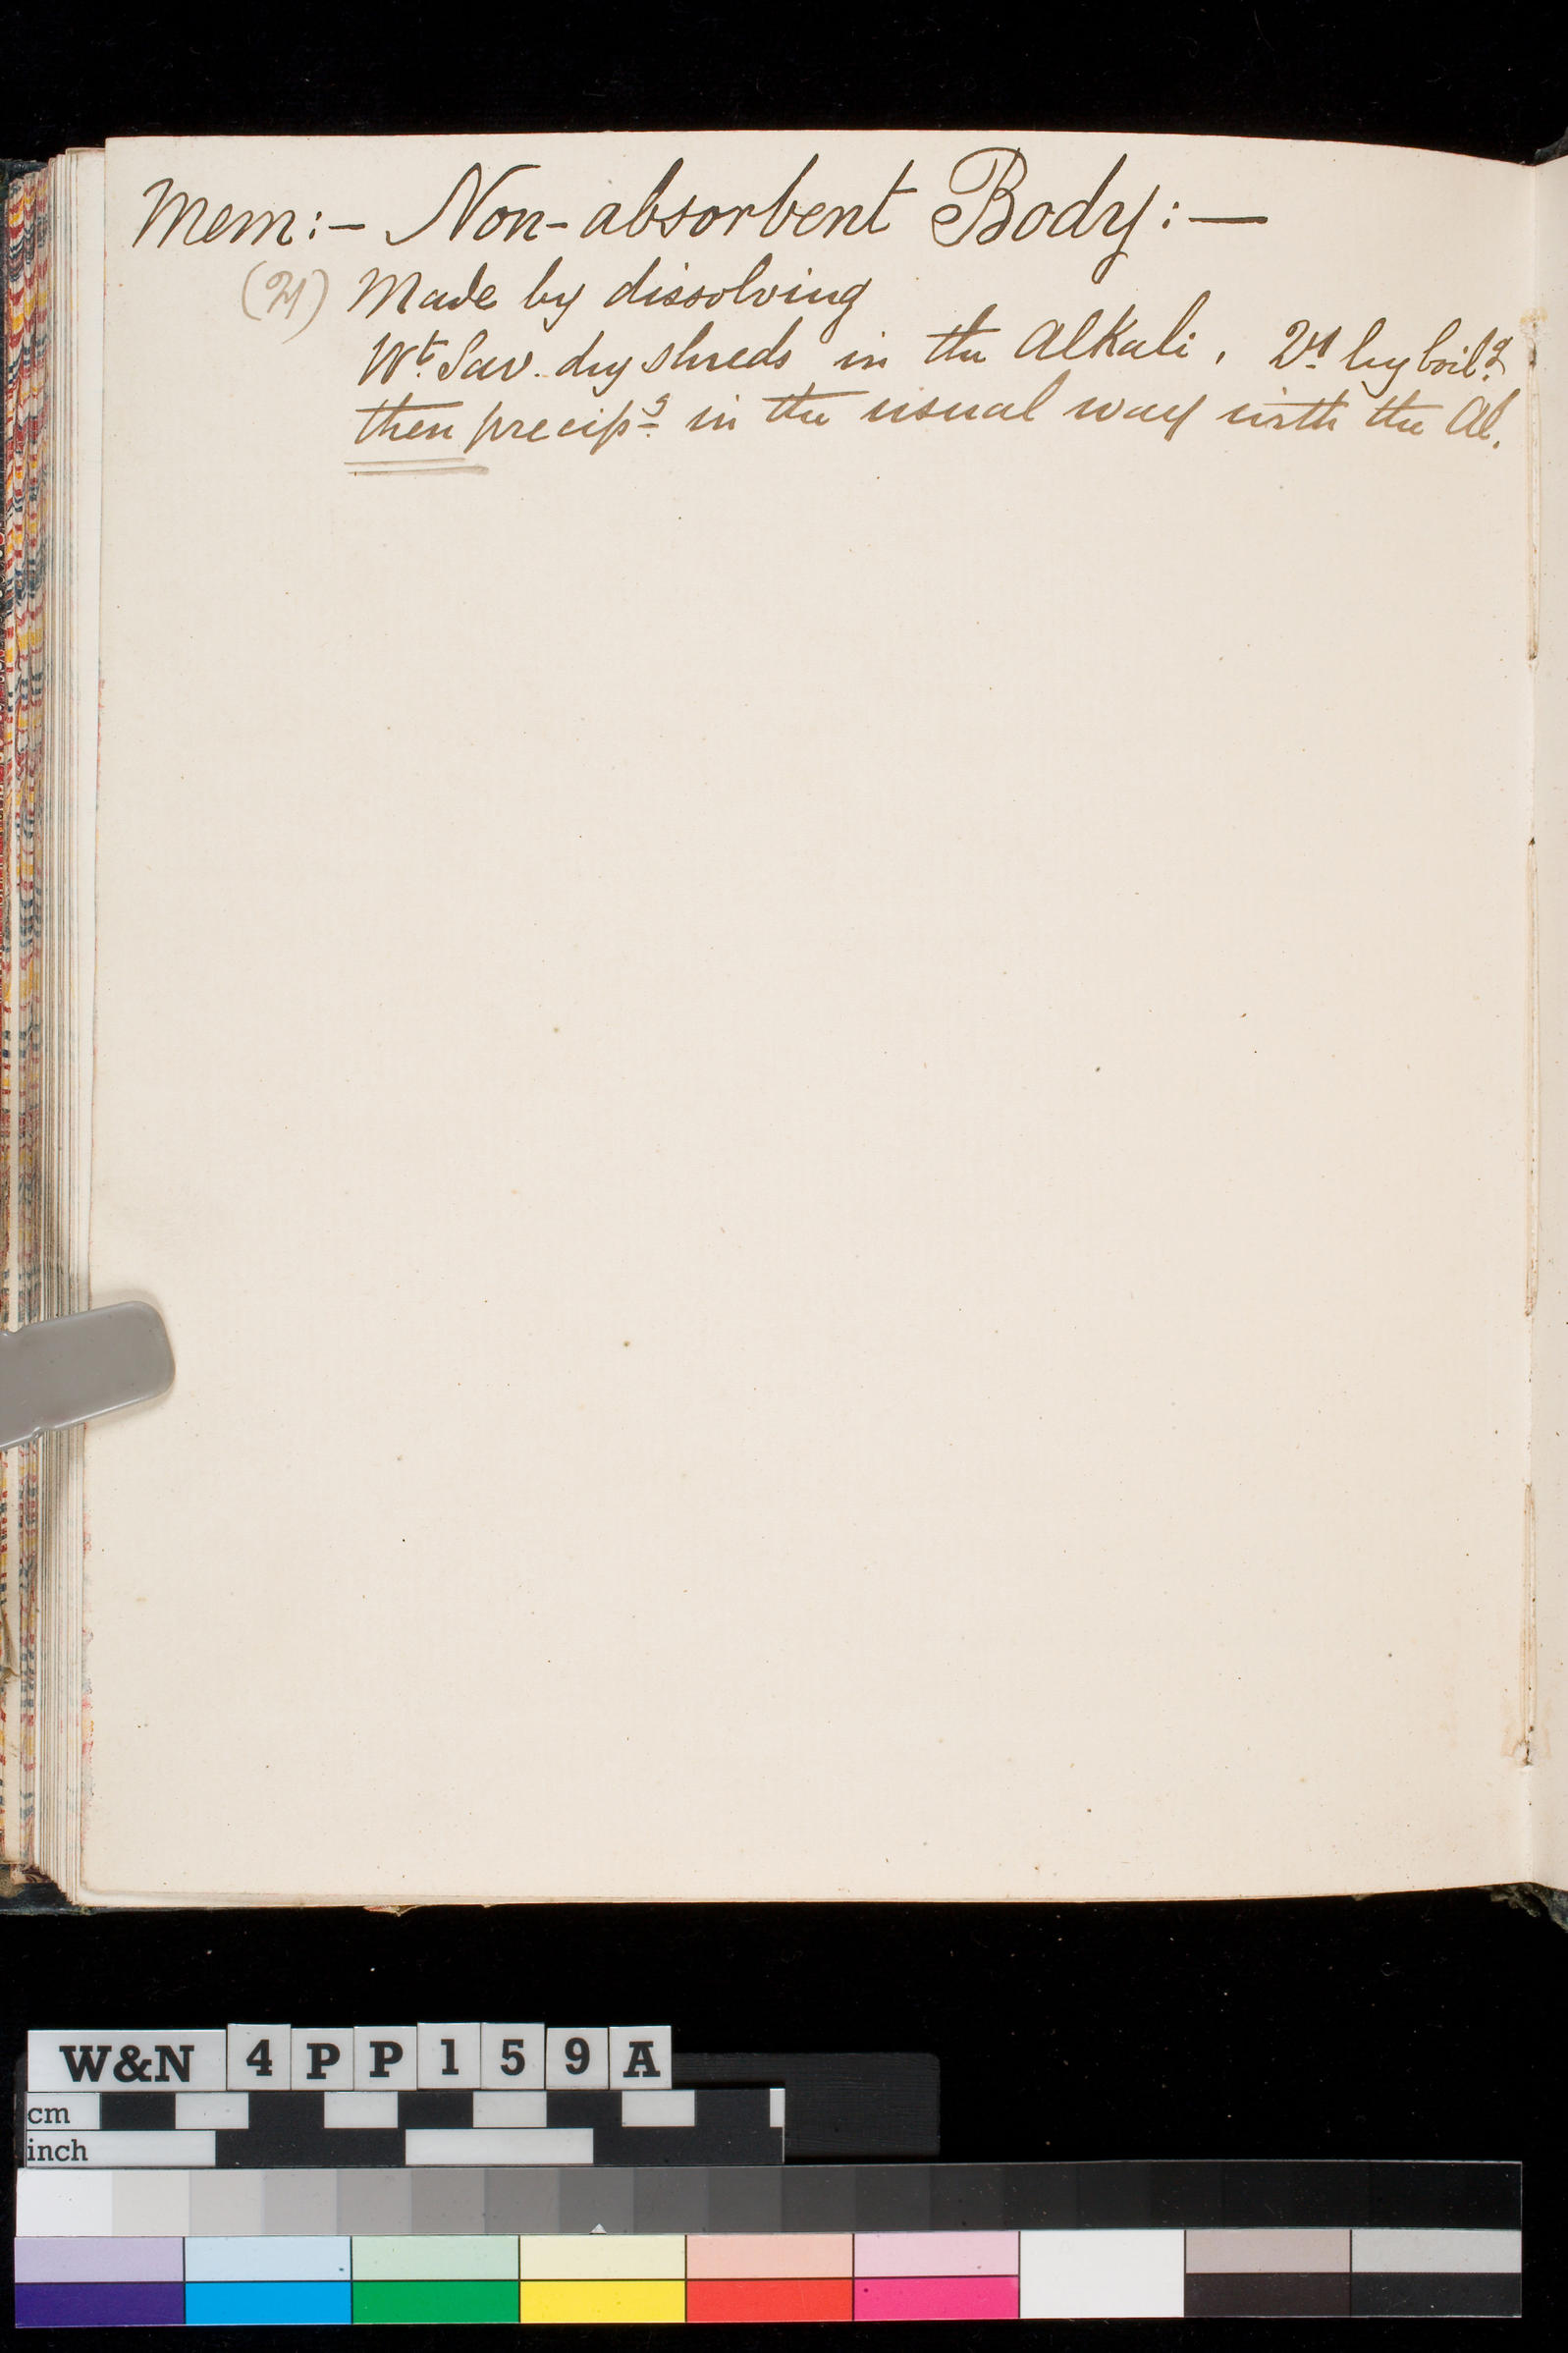 Mem:- Non-absorbent Body:—
(21) Made by dissolving
Wt. Sav. dry shreds in the Alkali, by boilg.
then precipg in the usual way with the Al.
W&N 4PP159A
cm
inch